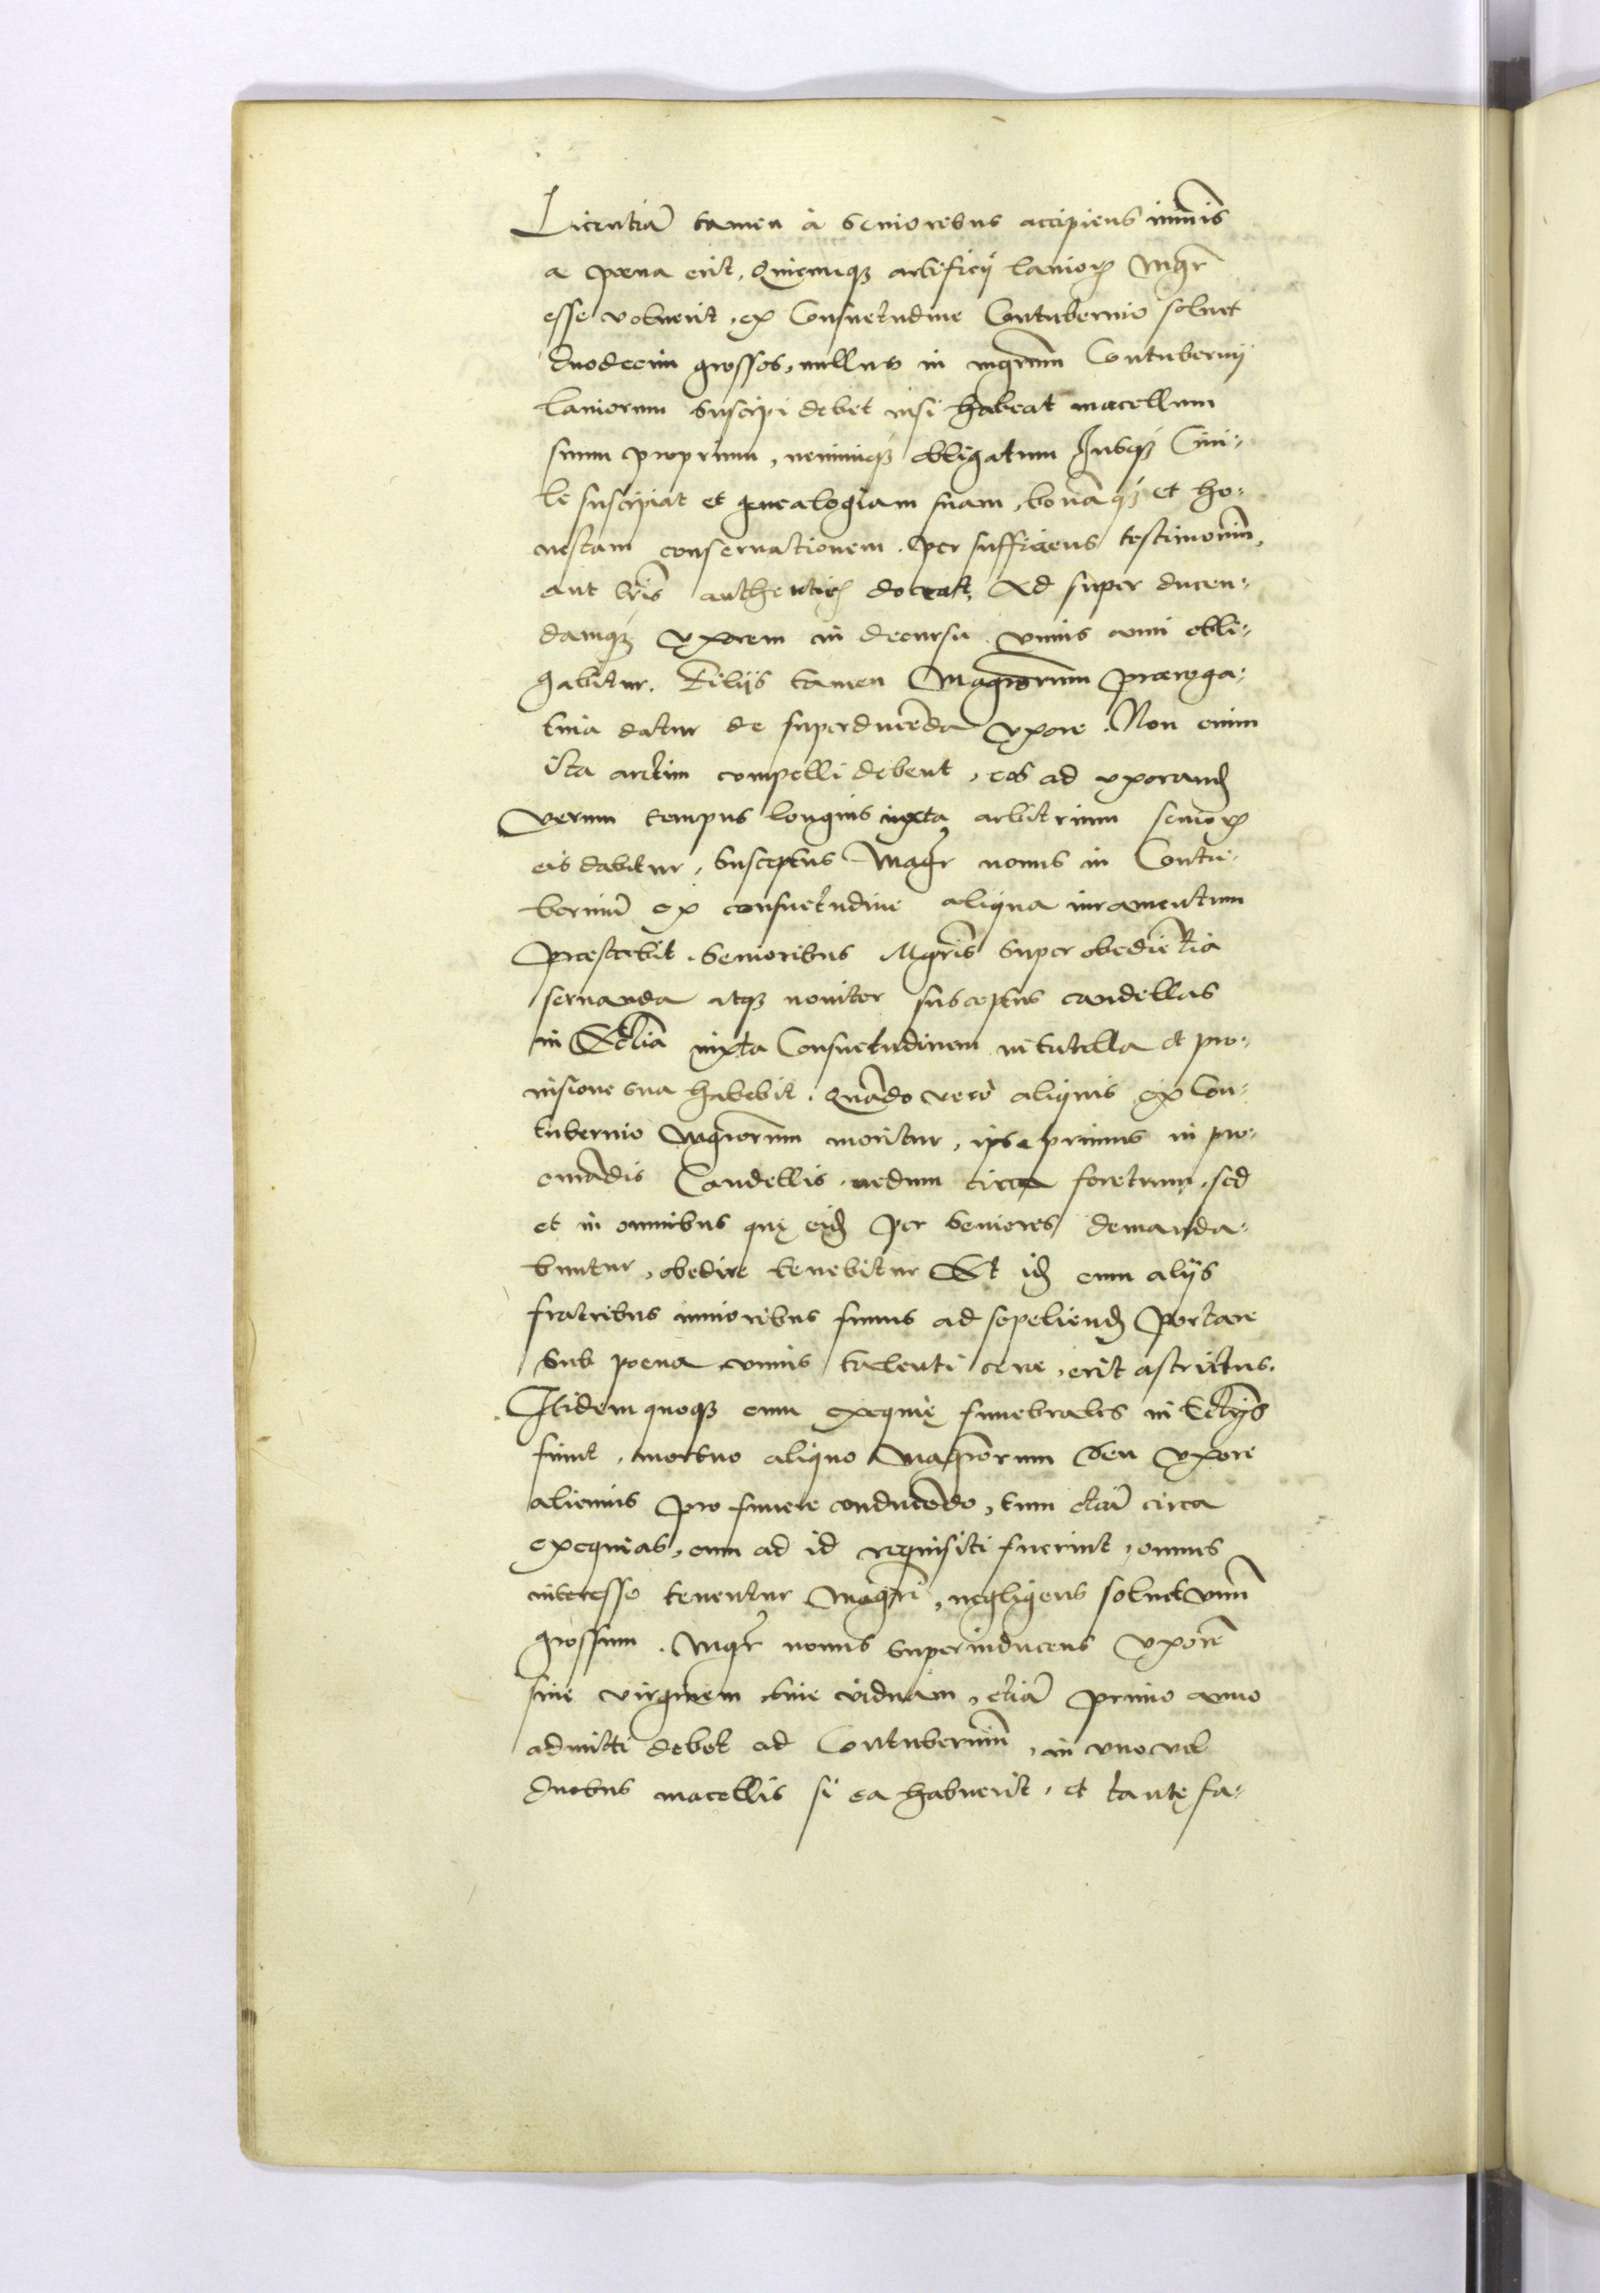 Licentiã tamen à Senioribus accipiens imunis
a poena erit. Quicunqȝ artificij lanioꝝ Mgr̃
esse voluerit, ex Consuetudine Contubernio soluet
duodecim grossos, nullus in mgrum Contubernij
laniorum suscipi debet nisi habeat macellum
suum proprium, neminiqȝ obligatum Iusqȝ Ciui-
le suscipiat et genealogiam suam, bonãqȝ et ho-
nestam conseruationem, per sufficiens testimoniũ,
aut lr̃is authenticꝭ doceat, Ad super ducen-
damqȝ vxorem in decursu vnius anni obli-
gabitur. Filijs tamen Magrorum Praeroga-
tiua datur de superducẽda vxore. Non enim
ita arctim compelli debent, eos ad vxorand̃
verum tempus longius iuxta arbitrium senioꝝ
eis dabitur, Susceptus Magr̃ nouus in Contu-
berniũ ex consuetudine aliqua iuramentum
Praestabit Senioribus Mgris super obediẽtia
seruanda atqȝ nouiter susceptus candellas
in Ecclia iuxta Consuetudinem in tutella et pro-
uisione sua habebit. Quãdo verò aliquis ex Con-
tubernio Mgrorum moritur, ipse primus in pro-
curãdis Candellis, nedum circa feretrum, sed
et in omnibus quę eid̃ per Seniores demanda-
buntur, obedire tenebitur Et id̃ cum alijs
fratribus iunioribus funus ad sepeliend̃ Portare
Sub poena vnius talenti cerae, erit astrictus.
Itidem quoqȝ cum exequię funebrales in Ecclijs
fiunt, mortuo aliquo Magrorum Seu vxore
alicuius pro funere conducẽdo, tum etiã circa
exequias, cum ad id requisiti fuerint, omnes
interesse tenentur Magri, negligens soluet vnũ
grossum. Mgr̃ nouus superinducens vxorẽ
siue virginem siue viduam, etiã primo anno
admitti debet ad Contuberniũ, in vno vel
duobus macellis si ea habuerit, et tantę fa-